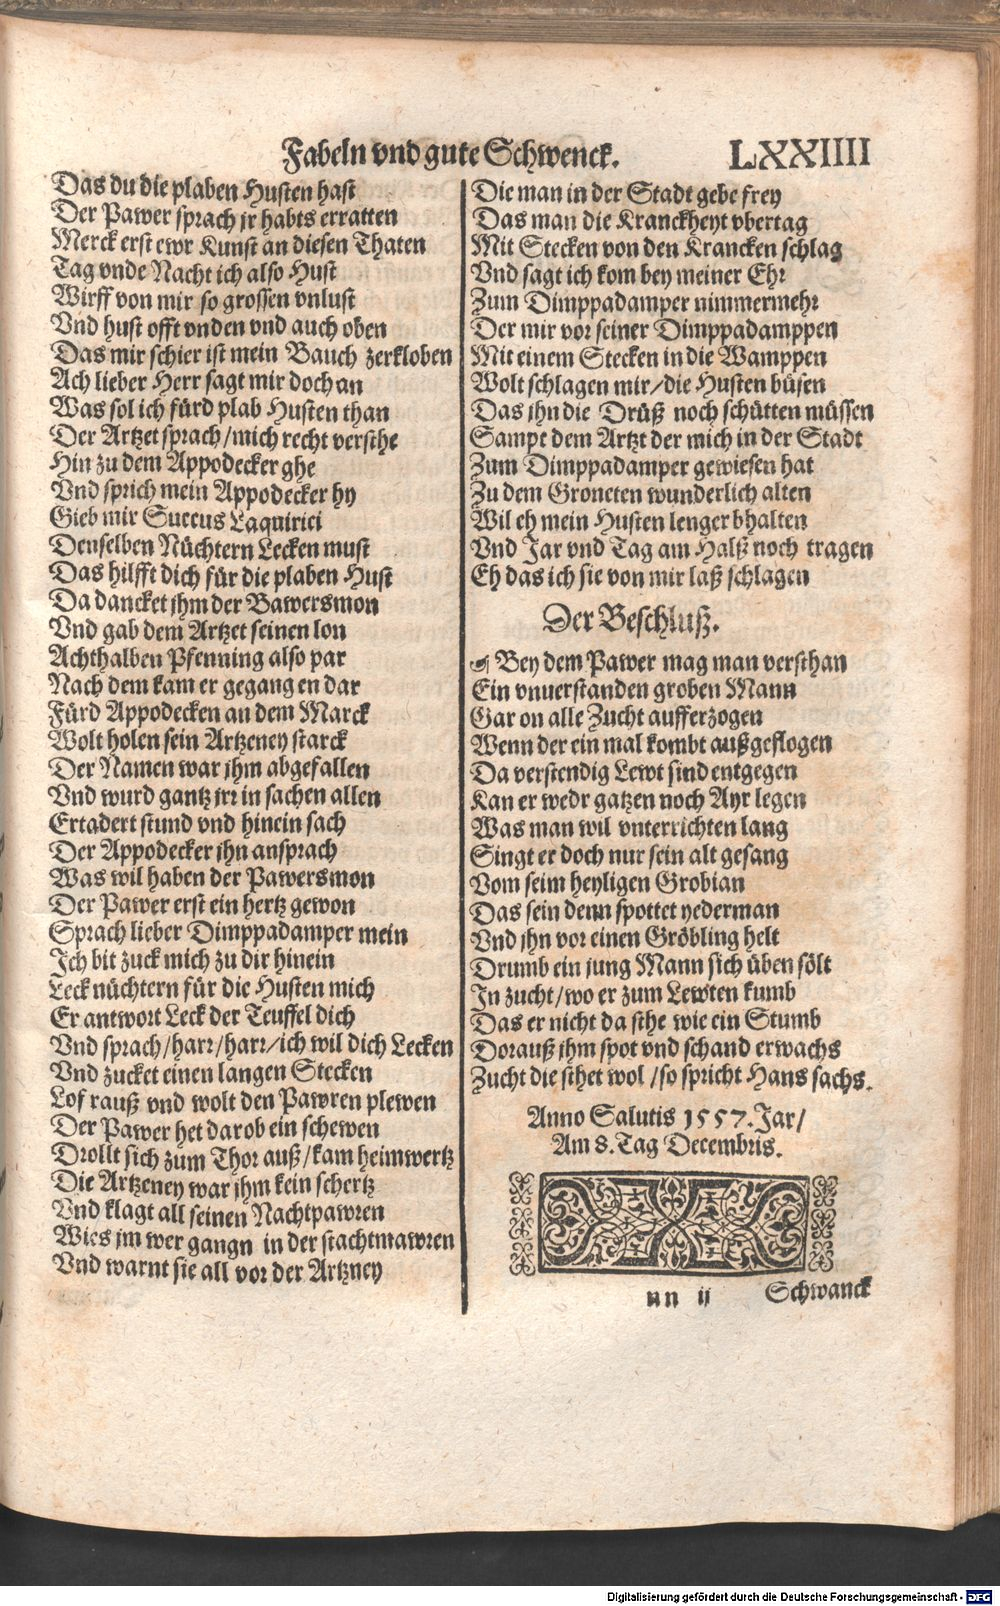 Fabeln vnd gute Schwenck. LXXIIII
Das du die plaben Husten hast
Der Pawer sprach jr habts erratten
Merck erst ewr Kunst an diesen Thaten
Tag vnde Nacht ich also Hust
Wirff von mir so grossen vnlust
Vnd hust offt vnden vnd auch oben
Das mir schier ist mein Bauch zerkloben
Ach lieber Herr sagt mir doch an
Was sol ich fürd plab Husten than
Der Artzet sprach/mich recht versthe
Hin zu dem Appodecker ghe
Vnd sprich mein Appodecker hy
Gieb mir Succus Laquirici
Denselben Nüchtern Lecken must
Das hilfft dich für die plaben Hust
Da dancket jhm der Bawersmon
Vnd gab dem Artzet seinen lon
Achthalben Pfenning also par
Nach dem kam er gegangen dar
Fürd Appodecken an dem Marck
Wolt holen sein Artzeney starck
Der Namen war jhm abgefallen
Vnd wurd gantz jrr in sachen allen
Ertadert stund vnd hinein sach
Der Appodecker jhn ansprach
Was wil haben der Pawersmon
Der Pawer erst ein hertz gewon
Sprach lieber Dimppadamper mein
Ich bit zuck mich zu dir hinein
Leck nüchtern für die Husten mich
Er antwort Leck der Teuffel dich
Vnd sprach/harr/harr/ich wil dich Lecken
Vnd zucket einen langen Stecken
Lof rauß vnd wolt den Pawren plewen
Der Pawer het darob ein schewen
Drollt sich zum Thor auß/kam heimwertz
Die Artzeney war jhm kein schertz
Vnd klagt all seinen Nachtpawren
Wies jm wer gangn in der stachtmawren
Vnd warnt sie all vor der Artzney
Die man in der Stadt gebe frey
Das man die Kranckheyt vbertag
Mit Stecken von den Krancken schlag
Vnd sagt ich kom bey meiner Ehr
Zum Dimppadamper nimmermehr
Der mir vor seiner Dimppadamppen
Mit einem Stecken in die Wamppen
Wolt schlagen mir/die Husten büsen
Das jhn die Drüß noch schütten müssen
Sampt dem Artzt der mich in der Stadt
Zum Dimppadamper gewiesen hat
Zu dem Groneten wunderlich alten
Wil eh mein Husten lenger bhalten
Vnd Jar vnd Tag am Halß noch tragen
Eh das ich sie von mir laß schlagen
Der Beschluß.
Bey dem Pawer mag man versthan
Ein vnuerstanden groben Mann
Gar on alle Zucht aufferzogen
Wenn der ein mal kombt außgeflogen
Da verstendig Lewt sind entgegen
Kan er wedr gatzen noch Ayr legen
Was man wil vnterrichten lang
Singt er doch nur sein alt gesang
Vom seim heyligen Grobian
Das sein denn spottet yederman
Vnd jhn vor einen Gröbling helt
Drumb ein jung Mann sich üben sölt
In zucht/wo er zum Lewten kumb
Das er nicht da sthe wie ein Stumb
Dorauß jhm spot vnd schand erwachs
Zucht die sthet wol/so spricht Hans sachs.
Anno Salutis 1557. Jar/
Am 8. Tag Decembris.
nn ij Schwanck
Digitalisierung gefördert durch die Deutsche Forschungsgemeinschaft - DFG